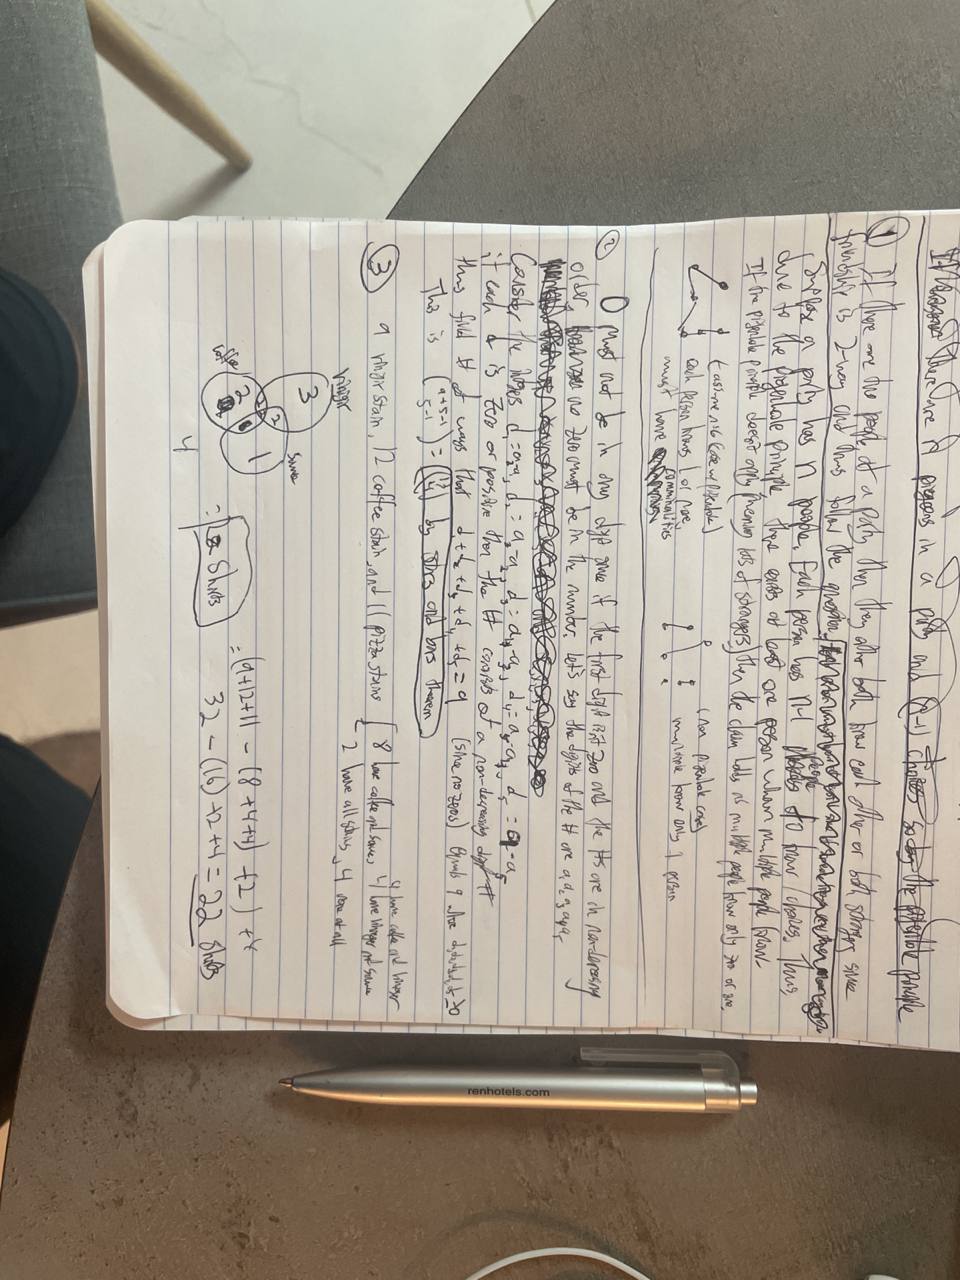 There are N pigeons in a party and (n-1) choices so by the pigenhole principle
① If there are two people at a party then they either both know each other or both strangers since
friendship is 2-way and thus follow the question.
Suppose a party has n people. Each person has n-1 people to know/choices. Thus,
due to the pigenhole principle, there exists at least one person whom multiple people know.
If the pigenhole principle doesn't apply (meaning lots of strangers) then the claim holds as multiple people know only zero or one.
(assume n=6 (case w/ pigenhole)
each person knows 1 or more,
must have commonalities
(non pigenhole case)
multiple know only 1 person
② 0 must not be in any digit since if the first digit isn't zero and the #s are in non-decreasing
order, no zero must be in the number. Let's say the digits of the # are a₁a₂a₃a₄a₅
Consider the d₁=a₂-a₁ d₂=a₃-a₂, d₃=a₄-a₃, d₄=a₅-a₄, d₅=9-a₅
if each d is zero or positive then the # consists of a non-decreasing digit #
thus find # of ways that d₁+d₂+d₃+d₄+d₅=9 (since no zeros) equals 9 d₁,d₂,d₃,d₄,d₅≥0
This is (9+5-1 5-1) = (13 4) by stars and bars theorem
③ 9 vinigir stain, 12 coffee stain, and 11 pizza stains
8 have coffee and sauce, 4 have coffee and vinegar
4 have vinegar and sauce
2 have all stains, 4 none at all
vinigir
3
Sauce
2
1
2
coffee
4
= Shirts
=(9+12+11 - (8+4+4) +2) +4
32 - (16) +2+4 = 22 Shirts
renhotels.com